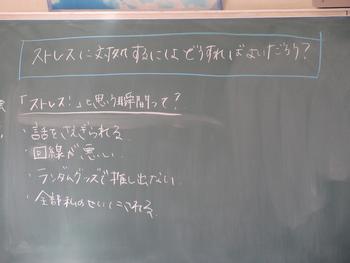 ストレスに対処するにはどうすればよいだろう？
「ストレス！」と思う瞬間って？
・話をさえぎられる
・回線が悪い
・ランダムグッズで推し出ない
・全部私のせいにされる